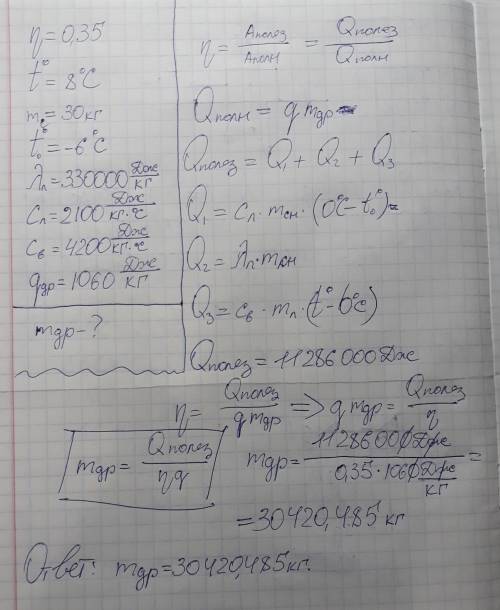 η = 0,35
t° = 8°C
m = 30кг
t₀° = -6°C
λл = 330000 Дж/кг
Cл = 2100 Дж/кг·°C
Cв = 4200 Дж/кг·°C
qдр = 1060 Дж/кг
mдр - ?
η = Aполез/Aполн = Qполез/Qполн
Qполн = q mдр
Qполез = Q₁ + Q₂ + Q₃
Q₁ = Cл · mсн · (0°C - t₀°)
Q₂ = λл · mсн
Q₃ = Cв · mл · (t° - 0°C)
Qполез = 11286000 Дж
η = Qполез/q mдр => q mдр = Qполез/η
mдр = Qполез/ηq
mдр = 11286000 Дж/0,35 · 1060 Дж/кг =
= 30420,485 кг
Ответ: mдр = 30420,485 кг.